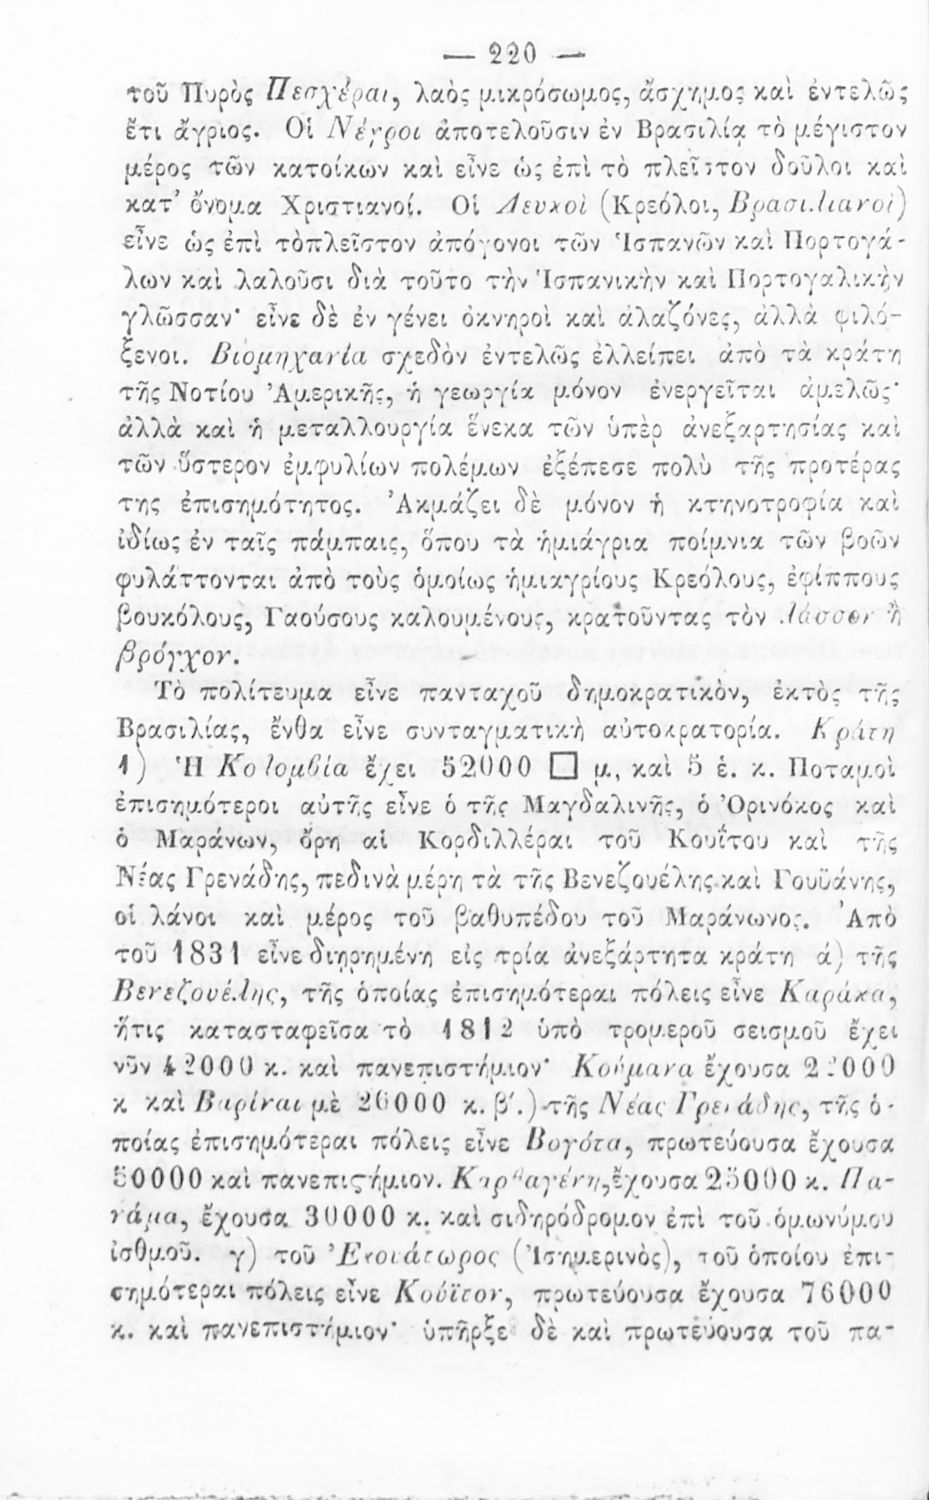 — 220 —
τοῦ Πυρὸς Πεσχέραι, λαὸς μικρόσωμος, ἄσχημος καὶ ἐντελῶς
ἔτι ἄγριος. Οἱ Νέγροι ἀποτελοῦσιν ἐν Βρασιλίᾳ τὸ μέγιστον
μέρος τῶν κατοίκων καὶ εἶνε ὡς ἐπὶ τὸ πλεῖστον δοῦλοι καὶ
κατ' ὄνομα Χριστιανοί. Οἱ Λευκοὶ (Κρεόλοι, Βρασιλιανοὶ)
εἶνε ὡς ἐπὶ τὸπλεῖστον ἀπόγονοι τῶν Ἱσπανῶν καὶ Πορτογά-
λων καὶ λαλοῦσι διὰ τοῦτο τὴν Ἱσπανικὴν καὶ Πορτογαλικὴν
γλῶσσαν· εἶνε δὲ ἐν γένει ὀκνηροὶ καὶ ἀλαζόνες, ἀλλὰ φιλό-
ξενοι. Βιομηχανία σχεδὸν ἐντελῶς ἐλλείπει ἀπὸ τὰ κράτη
τῆς Νοτίου Ἀμερικῆς, ἡ γεωργία μόνον ἐνεργεῖται ἀμελῶς·
ἀλλὰ καὶ ἡ μεταλλουργία ἕνεκα τῶν ὑπὲρ ἀνεξαρτησίας καὶ
τῶν ὕστερον ἐμφυλίων πολέμων ἐξέπεσε πολὺ τῆς προτέρας
της ἐπισημότητος. Ἀκμάζει δὲ μόνον ἡ κτηνοτροφία καὶ
ἰδίως ἐν ταῖς πάμπαις, ὅπου τὰ ἡμιάγρια ποίμνια τῶν βοῶν
φυλάττονται ἀπὸ τοὺς ὁμοίως ἡμιαγρίους Κρεόλους, ἐφίππους
βουκόλους, Γαούσους καλουμένους, κρατοῦντας τὸν λάσσον ἢ
βρόγχον.
Τὸ πολίτευμα εἶνε πανταχοῦ δημοκρατικὸν, ἐκτὸς τῆς
Βρασιλίας, ἔνθα εἶνε συνταγματικὴ αὐτοκρατορία. Κράτη
1) Ἡ Κολομβία ἔχει 52000 □ μ, καὶ 5 ἑ. κ. Ποταμοὶ
ἐπισημότεροι αὐτῆς εἶνε ὁ τῆς Μαγδαλινῆς, ὁ Ὀρινόκος καὶ
ὁ Μαράνων, ὄρη αἱ Κορδιλλέραι τοῦ Κουΐτου καὶ τῆς
Νέας Γρενάδης, πεδινὰ μέρη τὰ τῆς Βενεζουέλης καὶ Γουϋάνης,
οἱ λάνοι καὶ μέρος τοῦ βαθυπέδου τοῦ Μαράνωνος. Ἀπὸ
τοῦ 1831 εἶνε διῃρημένη εἰς τρία ἀνεξάρτητα κράτη ά) τῆς
Βενεζουέλης, τῆς ὁποίας ἐπισημότεραι πόλεις εἶνε Καράκα,
ἥτις κατασταφεῖσα τὸ 1812 ὑπὸ τρομεροῦ σεισμοῦ ἔχει
νῦν 42000 κ. καὶ πανεπιστήμιον· Κούμανα ἔχουσα 22000
κ καὶ Βαρίναι μὲ 26000 κ. β΄.) τῆς Νέας Γρενάδης, τῆς ὁ-
ποίας ἐπισημότεραι πόλεις εἶνε Βογότα, πρωτεύουσα ἔχουσα
50000 καὶ πανεπιςήμιον. Καρθαγένη, ἔχουσα 25000 κ. Πα-
νάμα, ἔχουσα 30000 κ. καὶ σιδηρόδρομον ἐπὶ τοῦ ὁμωνύμου
ἰσθμοῦ. γ) τοῦ Ἐκουάτωρος (Ἰσημερινὸς), τοῦ ὁποίου ἐπι-
σημότεραι πόλεις εἶνε Κούϊτον, πρωτεύουσα ἔχουσα 76000
κ. καὶ πανεπιστήμιον· ὑπῆρξε δὲ καὶ πρωτεύουσα τοῦ πα-